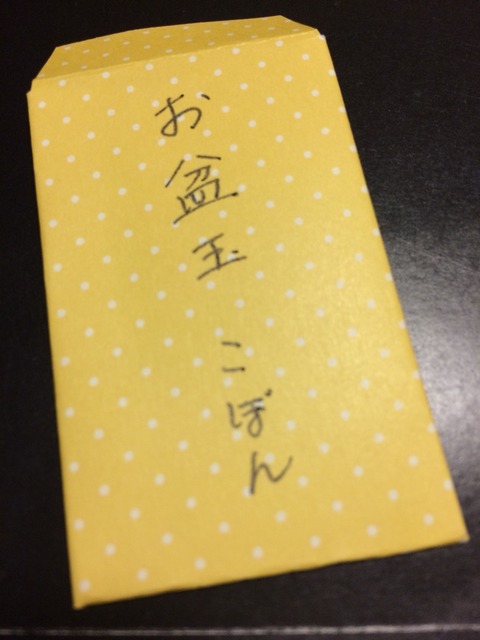 お盆玉 こぽん